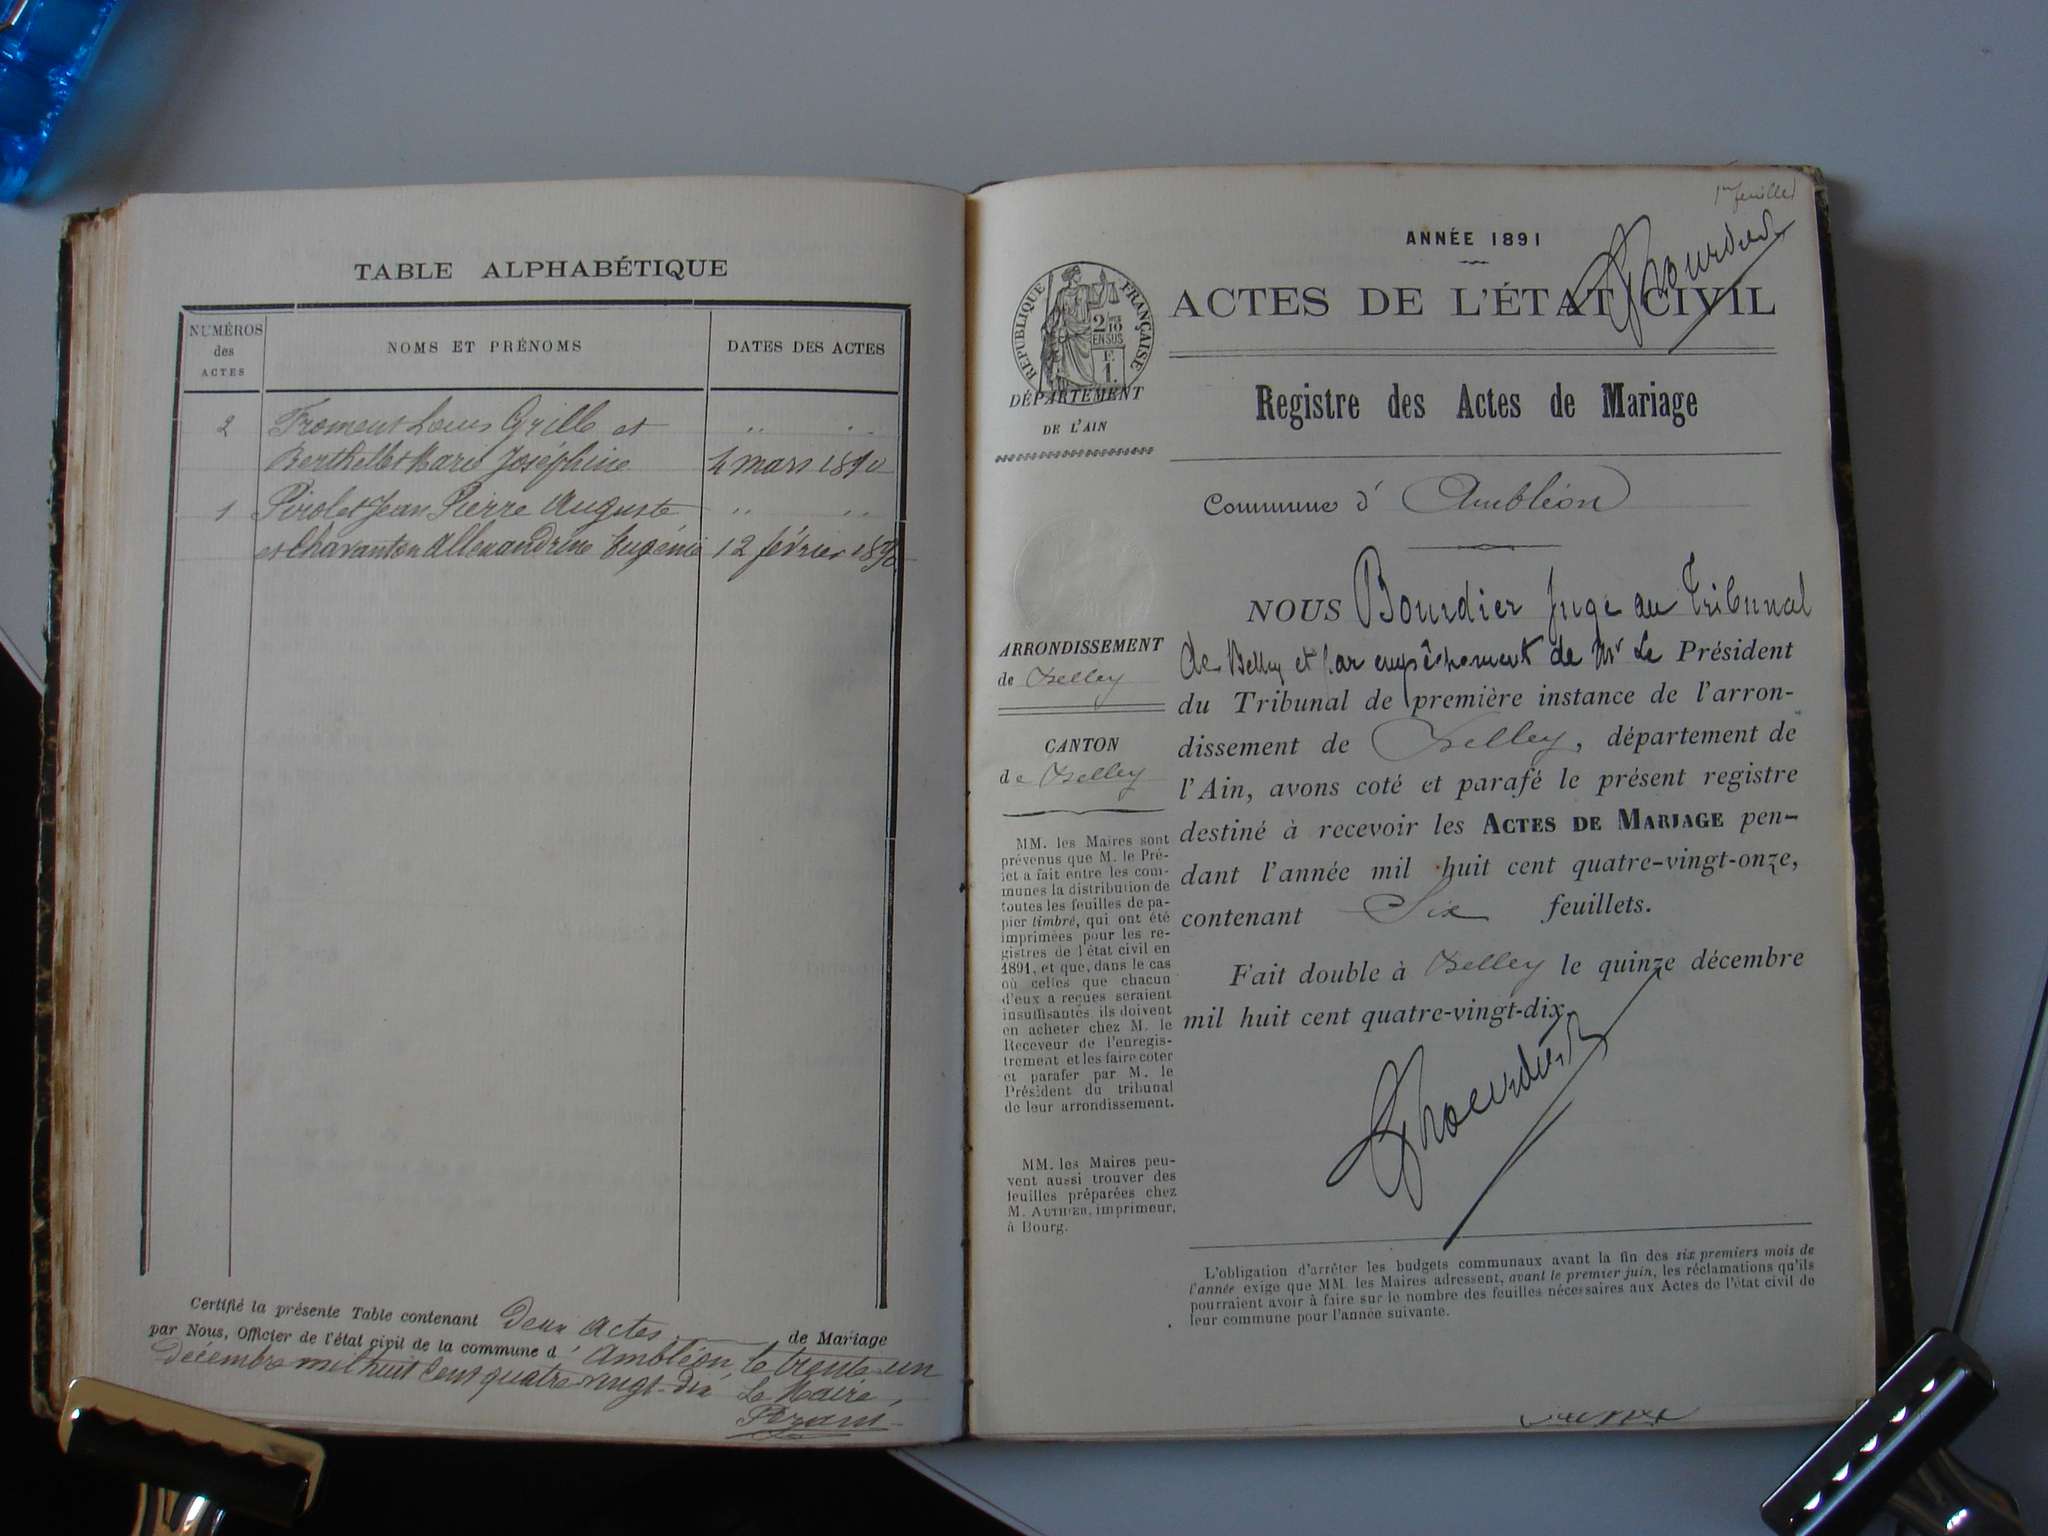 TABLE ALPHABÉTIQUE
NUMÉROS
des
ACTES
NOMS ET PRÉNOMS
DATES DES ACTES
2 Froment Louis Cyrille et " "
Berthelet Marie Joséphine 4 mars 1890
1 Pirolet Jean Pierre Auguste " "
et Chavanton Allexandrine Eugénie 12 février 1890
Certifié la présente Table contenant Deux Actes de Mariage
par Nous, Officier de l'état civil de la commune d' Ambléon, le trente un
décembre mil huit cent quatre vingt-dix Le Maire,
1re feuillet
ANNÉE 1891
ACTES DE L'ÉTAT CIVIL
RÉPUBLIQUE FRANÇAISE
2/10
EN SUS
F.
1.
DÉPARTEMENT
DE L'AIN
Registre des Actes de Mariage
Commune d' Ambléon
ARRONDISSEMENT
de Belley
CANTON
de Belley
MM. les Maires sont
prévenus que M. le Pré-
fet a fait entre les com-
munes la distribution de
toutes les feuilles de pa-
pier timbré, qui ont été
imprimées pour les re-
gistres de l'état civil en
1891, et que, dans le cas
où celles que chacun
d'eux a reçues seraient
insuffisantes, ils doivent
en acheter chez M. le
Receveur de l'enregis-
trement et les faire coter
et parafer par M. le
Président du tribunal
de leur arrondissement.
MM. les Maires peu-
vent aussi trouver des
feuilles préparées chez
M. AUTHIER, imprimeur,
à Bourg.
NOUS Bourdier Juge au Tribunal
de Belley et par empêchement de Mr Le Président
du Tribunal de première instance de l'arron-
dissement de Belley, département de
l'Ain, avons coté et parafé le présent registre
destiné à recevoir les ACTES DE MARIAGE pen-
dant l'année mil huit cent quatre-vingt-onze,
contenant Six feuillets.
Fait double à Belley le quinze décembre
mil huit cent quatre-vingt-dix.
L'obligation d'arrêter les budgets communaux avant la fin des six premiers mois de
l'année exige que MM. les Maires adressent, avant le premier juin, les réclamations qu'ils
pourraient avoir à faire sur le nombre des feuilles nécessaires aux Actes de l'état civil de
leur commune pour l'année suivante.